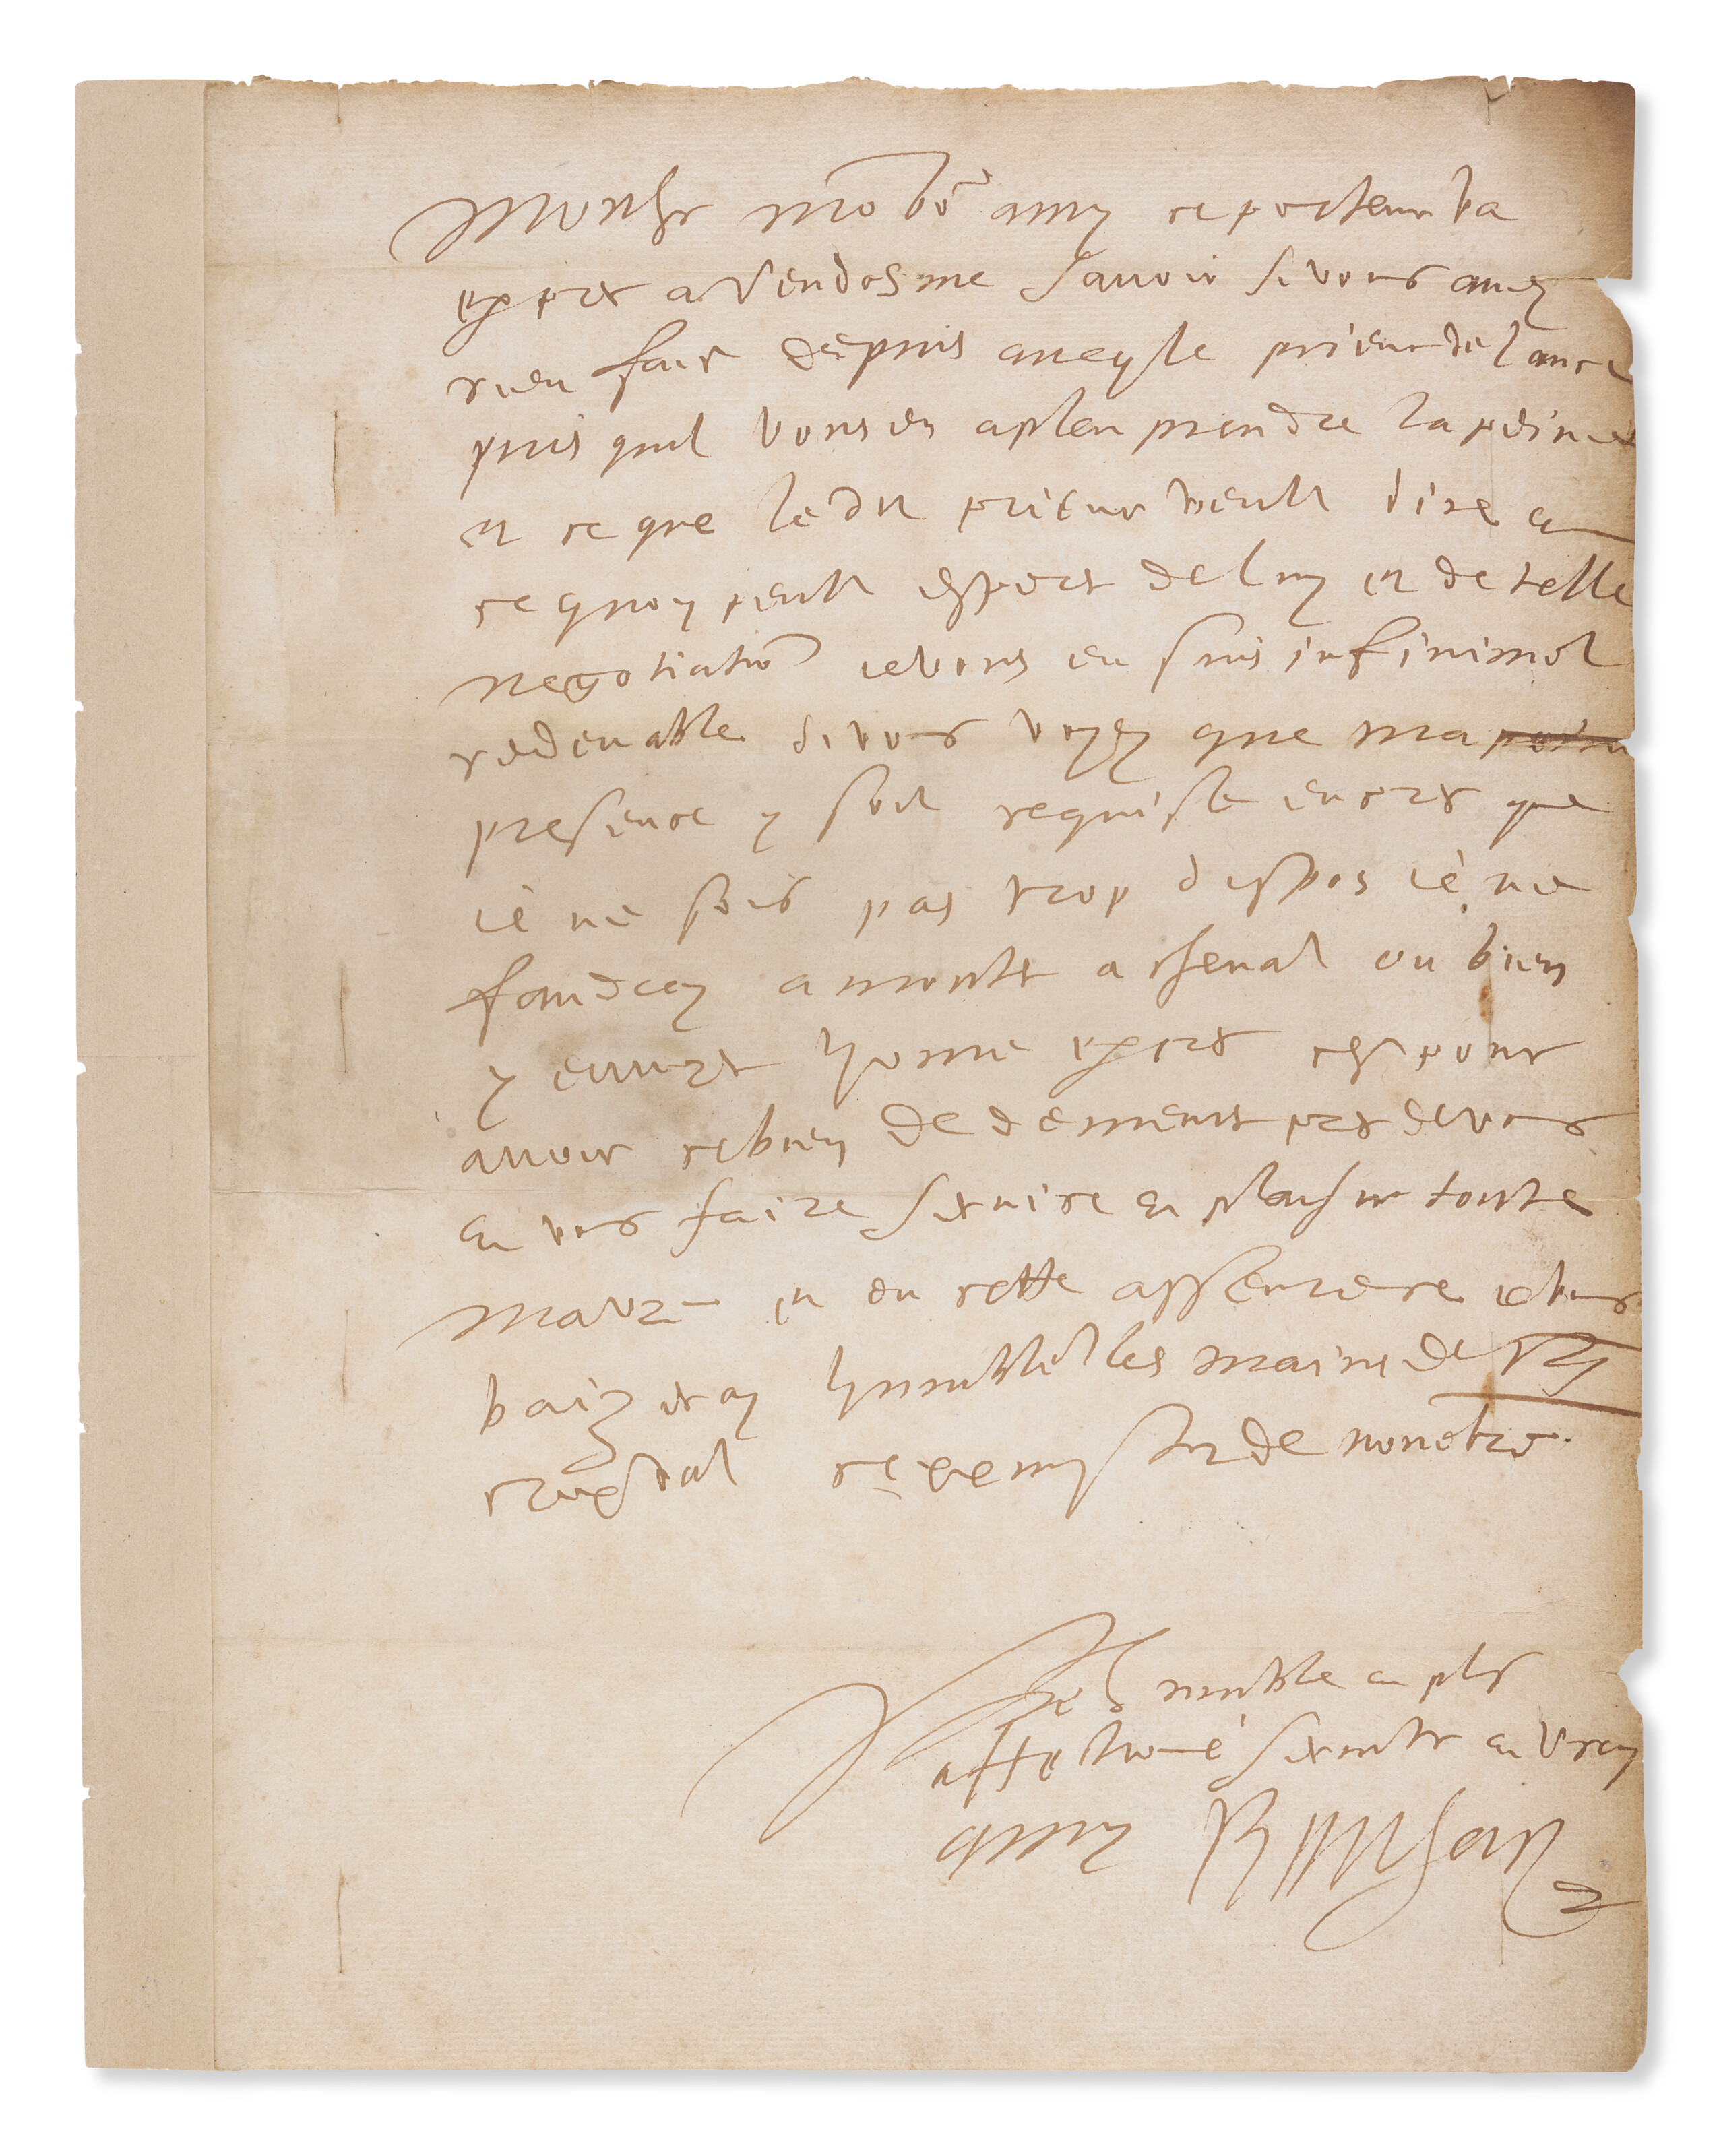 Monsr mõ bõ amy ce porteur va
expres a Vendosme savoir si vous avez
rien fait depuis avecq le prieur de lance
puis quil vous en a pleu prendre la peine
et ce que ledit prieur veult dire et
ce quon peult esperer de luy et de telle
negotiatiõ ie vous en suis infinimẽt
redevable si vous voyez que ma
presence y soit requise encores que
ie ne sois pas trop dispos ie ne
faudrey a monter a cheval ou bien
y envoyer home expres cest pour
avoir ce bien de demeurer pres de vous
et vous faire service et plaisir toute
ma vie et en cette asseurence ie vous
baizeray humblemẽt les mains de
croixval ce xxmy de novẽbre.
humble et plus
affectioné serviteur et vray
amy Ronsard